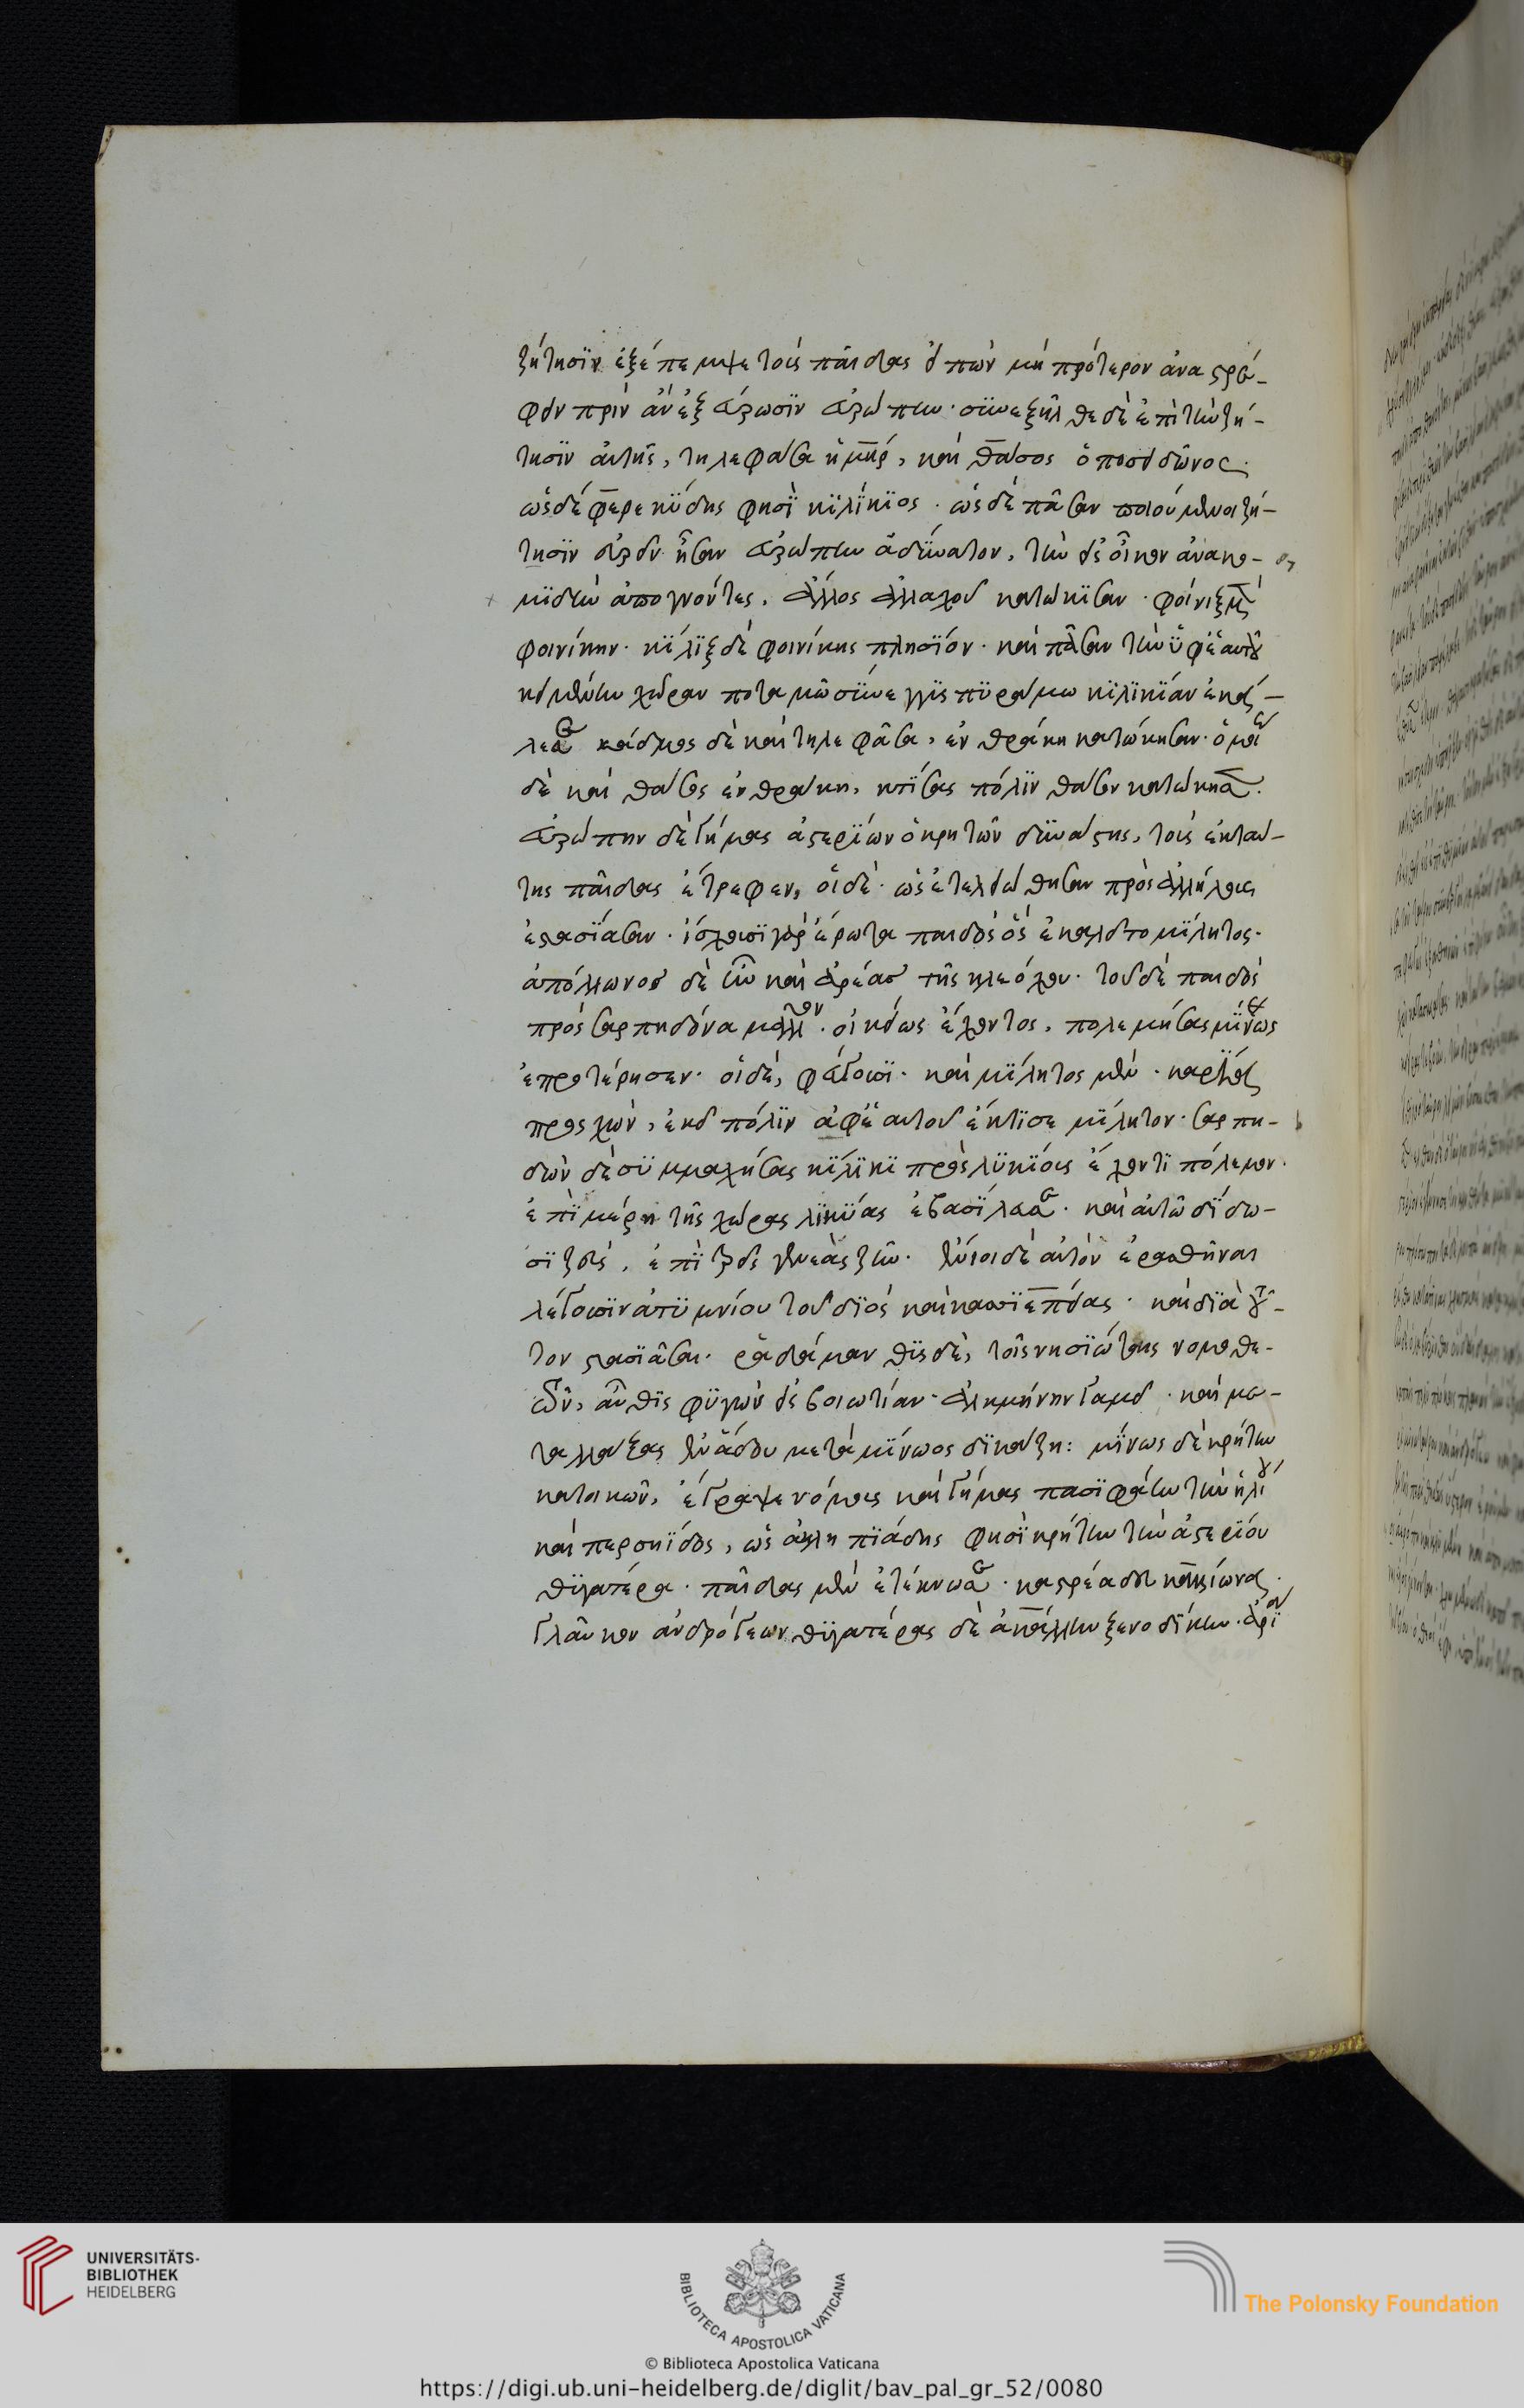 ζήτησϊν ἐξέπεμψε τοὺς παῖδας εἰπὼν μὴ πρότερον ἀναστρέ-
φειν πρὶν ἂν ἐξεύρωσϊν εὐρώπην · συνεξῆλθε δὲ ἐπὶ τὴν ζή-
τησϊν αὐτῆς, τηλεφάσσα ἡ μ̅η̅ρ, καὶ θάσος ὁ ποσειδῶνος ·
ὡς δὲ φερεκύδης φησὶ κϊλίκϊος · ὡς δὲ πᾶσαν ποιούμενοι ζή-
τησϊν εὑρεῖν ἦσαν εὐρώπην ἀδύνατον, τὴν εἰς οἶκον ἀνακο-
μϊδὴν ἀπογνόντες, ἄλλος ἀλλαχοῦ κατώκϊσαν · φοίνιξ μ(ὲν)
φοινίκην · κίλϊξ δὲ φοινίκης πλησϊόν · καὶ πᾶσαν τὴν ὑφ' ἑαυτοῦ
κειμένην χώραν ποταμῶ σύνεγγϋς πϋράμω κϊλϊκϊάν ἐκά-
λεσε κάδμος δὲ καὶ τηλεφάσσα, ἐν θράκη κατώκησαν · ὁμοί(ως)
δὲ καὶ θάσος ἐν θράκη, κτίσας πόλϊν θάσον κατώκησε.
εὐρώπην δὲ γήμας ἀστερϊων ὁ κρητῶν δυνάστης, τοὺς ἐκ ταύ-
της παῖδας ἔτρεφεν, οἱ δὲ · ὡς ἐτελειώθησαν πρὸς ἀλλήλους
ἐστασίασαν · ἴσχουσϊ γὰρ ἔρωτα παιδὸς ὃς ἐκαλεῖτο μίλητος ·
ἀπόλλωνος δὲ ἦν καὶ ἀρέας τῆς κλεόχου · τοῦ δὲ παιδὸς
πρὸς σαρπηδόνα μᾶλλον · οἰκείως ἔχοντος, πολεμήσας μίνως
ἐπροτέρησεν · οἱ δὲ, φεύγουσϊ · καὶ μίλητος μὲν · καρίας
προσχὼν, ἐκεῖ πόλϊν ἀφ' ἑαυτοῦ ἔκτϊσε μίλητον · σαρπη-
δὼν δὲ συμμαχήσας κίλϊκϊ πρὸς λϋκίους ἔχοντϊ πόλεμον ·
ἐπὶ μέρη τῆς χώρας λϋκίας ἐβασίλευσε · καὶ αὐτῶ δίδω-
σϊ ζεὺς, ἐπὶ τρεῖς γενεὰς ζῆν · ἔνιοι δὲ αὐτὸν ἐρασθῆναι
λέγουσϊν ἀτϋμνίου τοῦ δϊὸς καὶ κασϊεπείας · καὶ δϊὰ τοῦ-
τον στασϊᾶσαι · ῥαδάμανθϋς δὲ, τοῖς νησϊώταις νομοθε-
τῶν, αὖθϊς φυγὼν εἰς βοιωτίαν · ἀλκμήνην γαμεῖ · καὶ με-
ταλλάξας ἐν ἅδου μετὰ μίνωος δϊκάζει : μίνως δὲ κρήτην
κατοικῶν, ἔγραψε νόμους καὶ γήμας πασϊφάην τὴν ἡλίου
καὶ περσηίδος, ὡς ἀσκληπϊάδης φησὶ κρήτην τὴν ἀστερίου
θϋγατέρα · παῖδας μὲν ἐτέκνωσε · κατρέα δευκαλίωνα ·
γλαῦκον ἀνδρόγεων, θϋγατέρας δὲ ἀκάλλην ξενοδίκην · ἀρι
UNIVERSITÄTS-
BIBLIOTHEK
HEIDELBERG
BIBLIOTECA APOSTOLICA VATICANA
© Biblioteca Apostolica Vaticana
The Polonsky Foundation
https://digi.ub.uni-heidelberg.de/diglit/bav_pal_gr_52/0080